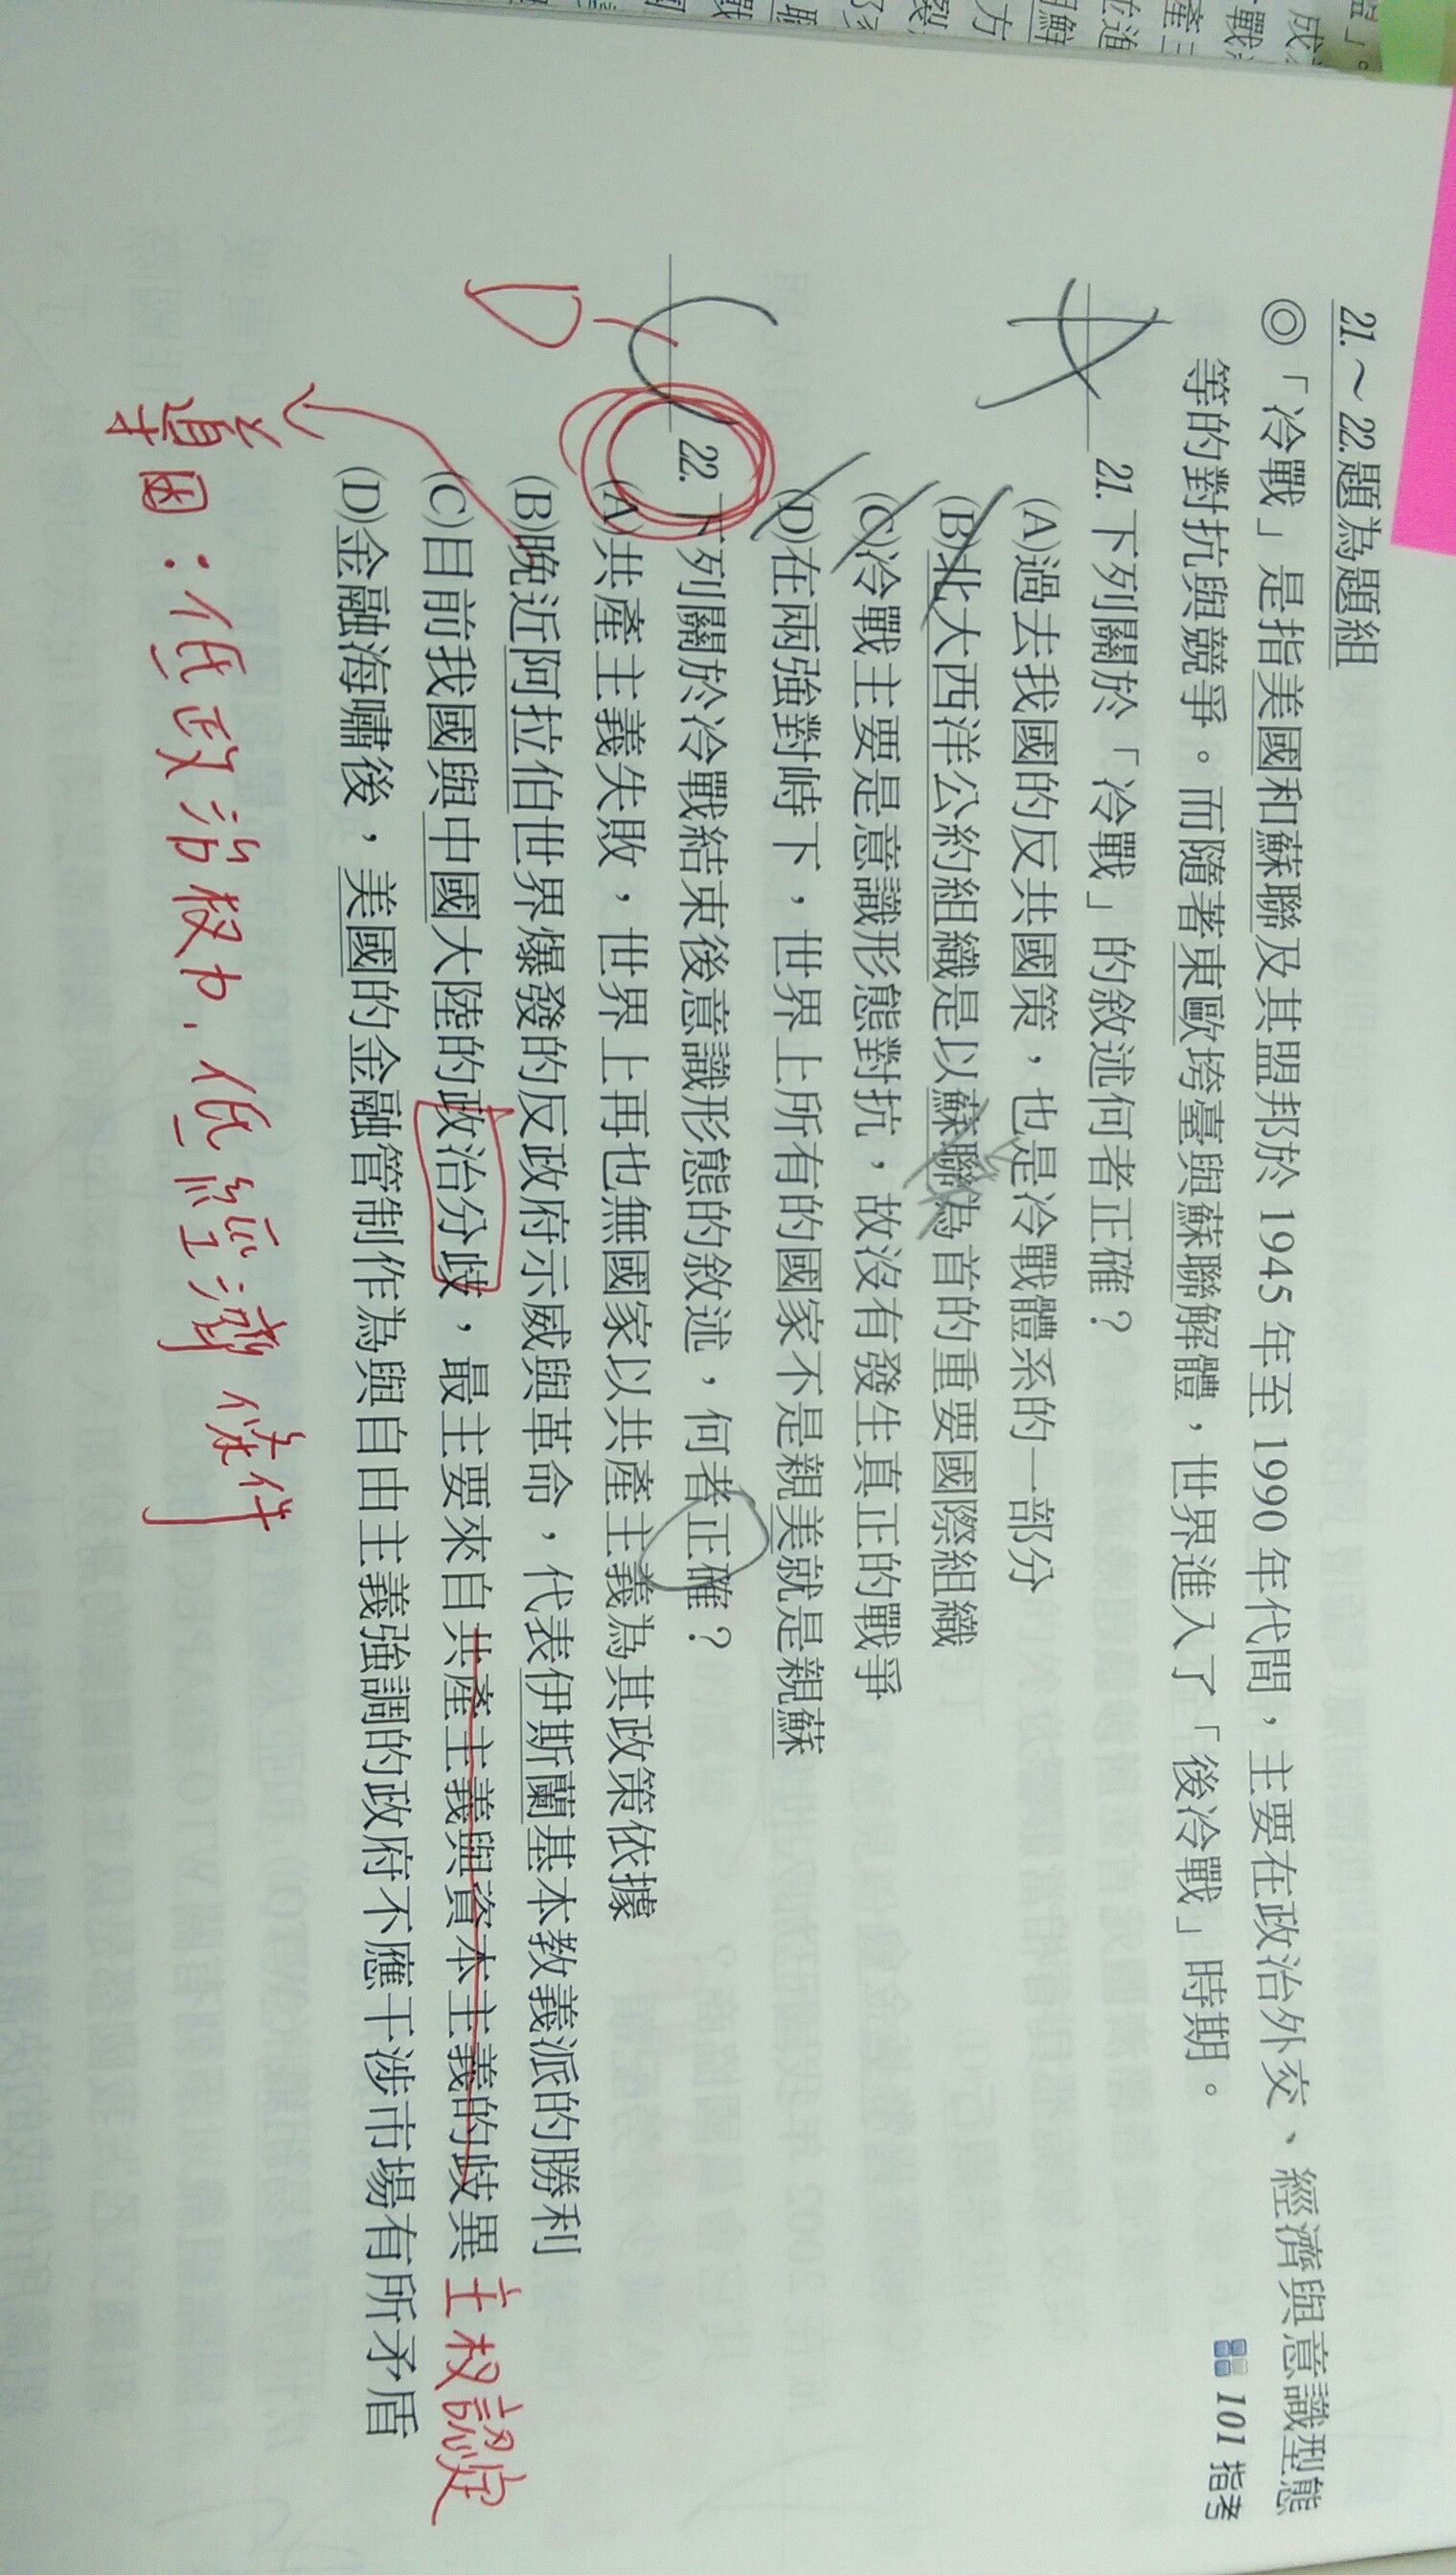 21.～22.題為題組
◎「冷戰」是指美國和蘇聯及其盟邦於 1945 年至 1990 年代間，主要在政治外交、經濟與意識型態
等的對抗與競爭。而隨著東歐垮臺與蘇聯解體，世界進入了「後冷戰」時期。
101 指考
A
21. 下列關於「冷戰」的敘述何者正確？
(A)過去我國的反共國策，也是冷戰體系的一部分
(B)北大西洋公約組織是以蘇聯為首的重要國際組織
(C)冷戰主要是意識形態對抗，故沒有發生真正的戰爭
(D)在兩強對峙下，世界上所有的國家不是親美就是親蘇
C
D
22. 下列關於冷戰結束後意識形態的敘述，何者正確？
(A)共產主義失敗，世界上再也無國家以共產主義為其政策依據
(B)晚近阿拉伯世界爆發的反政府示威與革命，代表伊斯蘭基本教義派的勝利
(C)目前我國與中國大陸的政治分歧，最主要來自共產主義與資本主義的歧異
主权認定
(D)金融海嘯後，美國的金融管制作為與自由主義強調的政府不應干涉市場有所矛盾
導因：低政治权力．低經濟條件